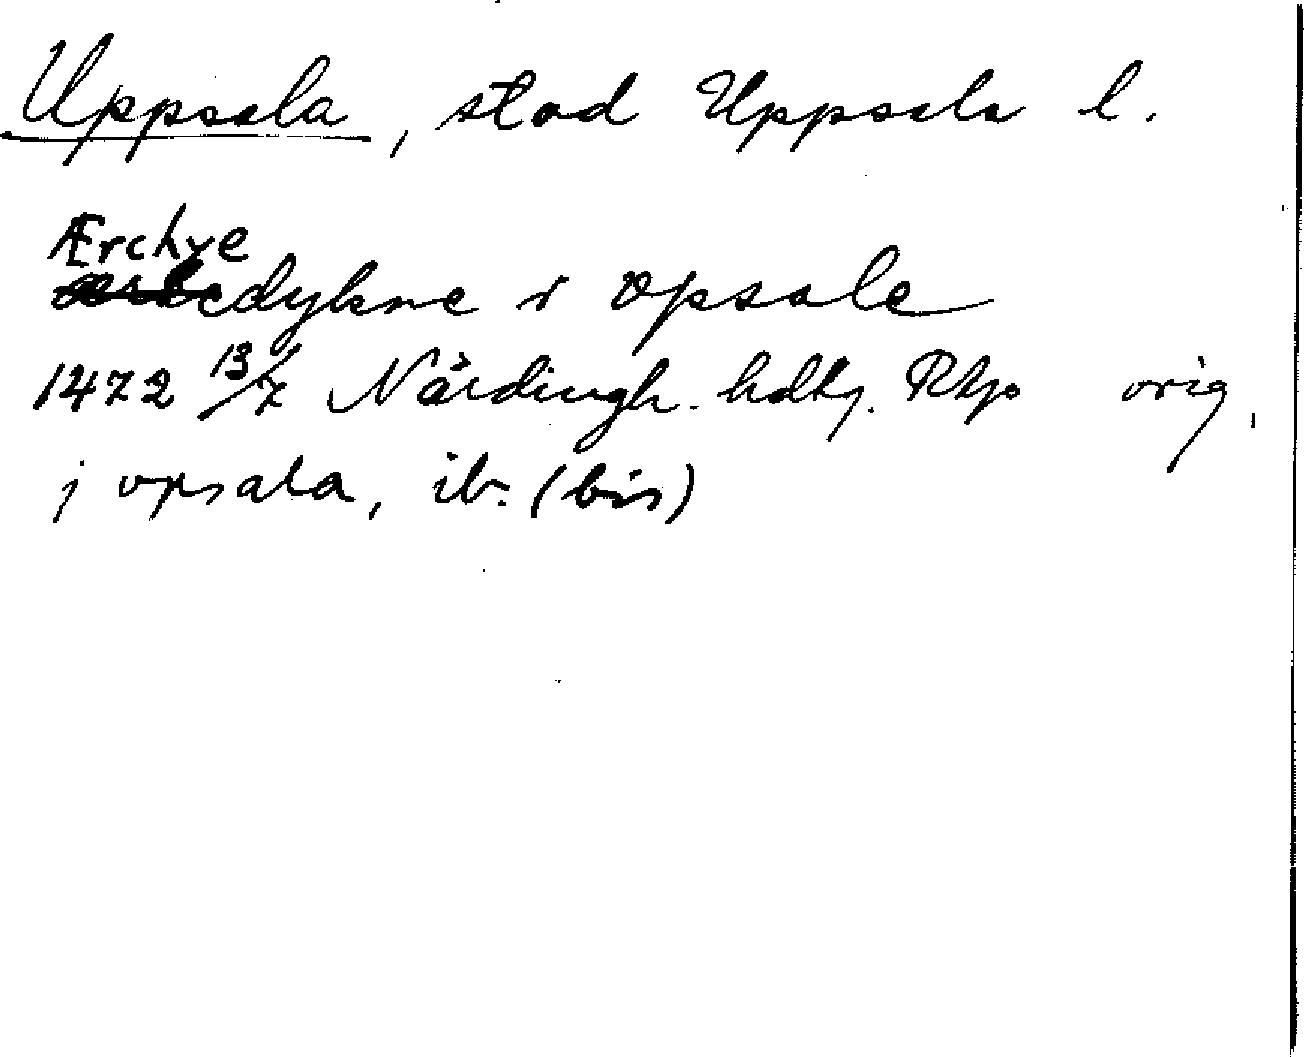 Uppsala, stad Uppsala l.
Ærchye
dykne i Opsale
1472 13/7 Närdingh. hdlg. Rhp orig.
j vpsala, ib. (bis)